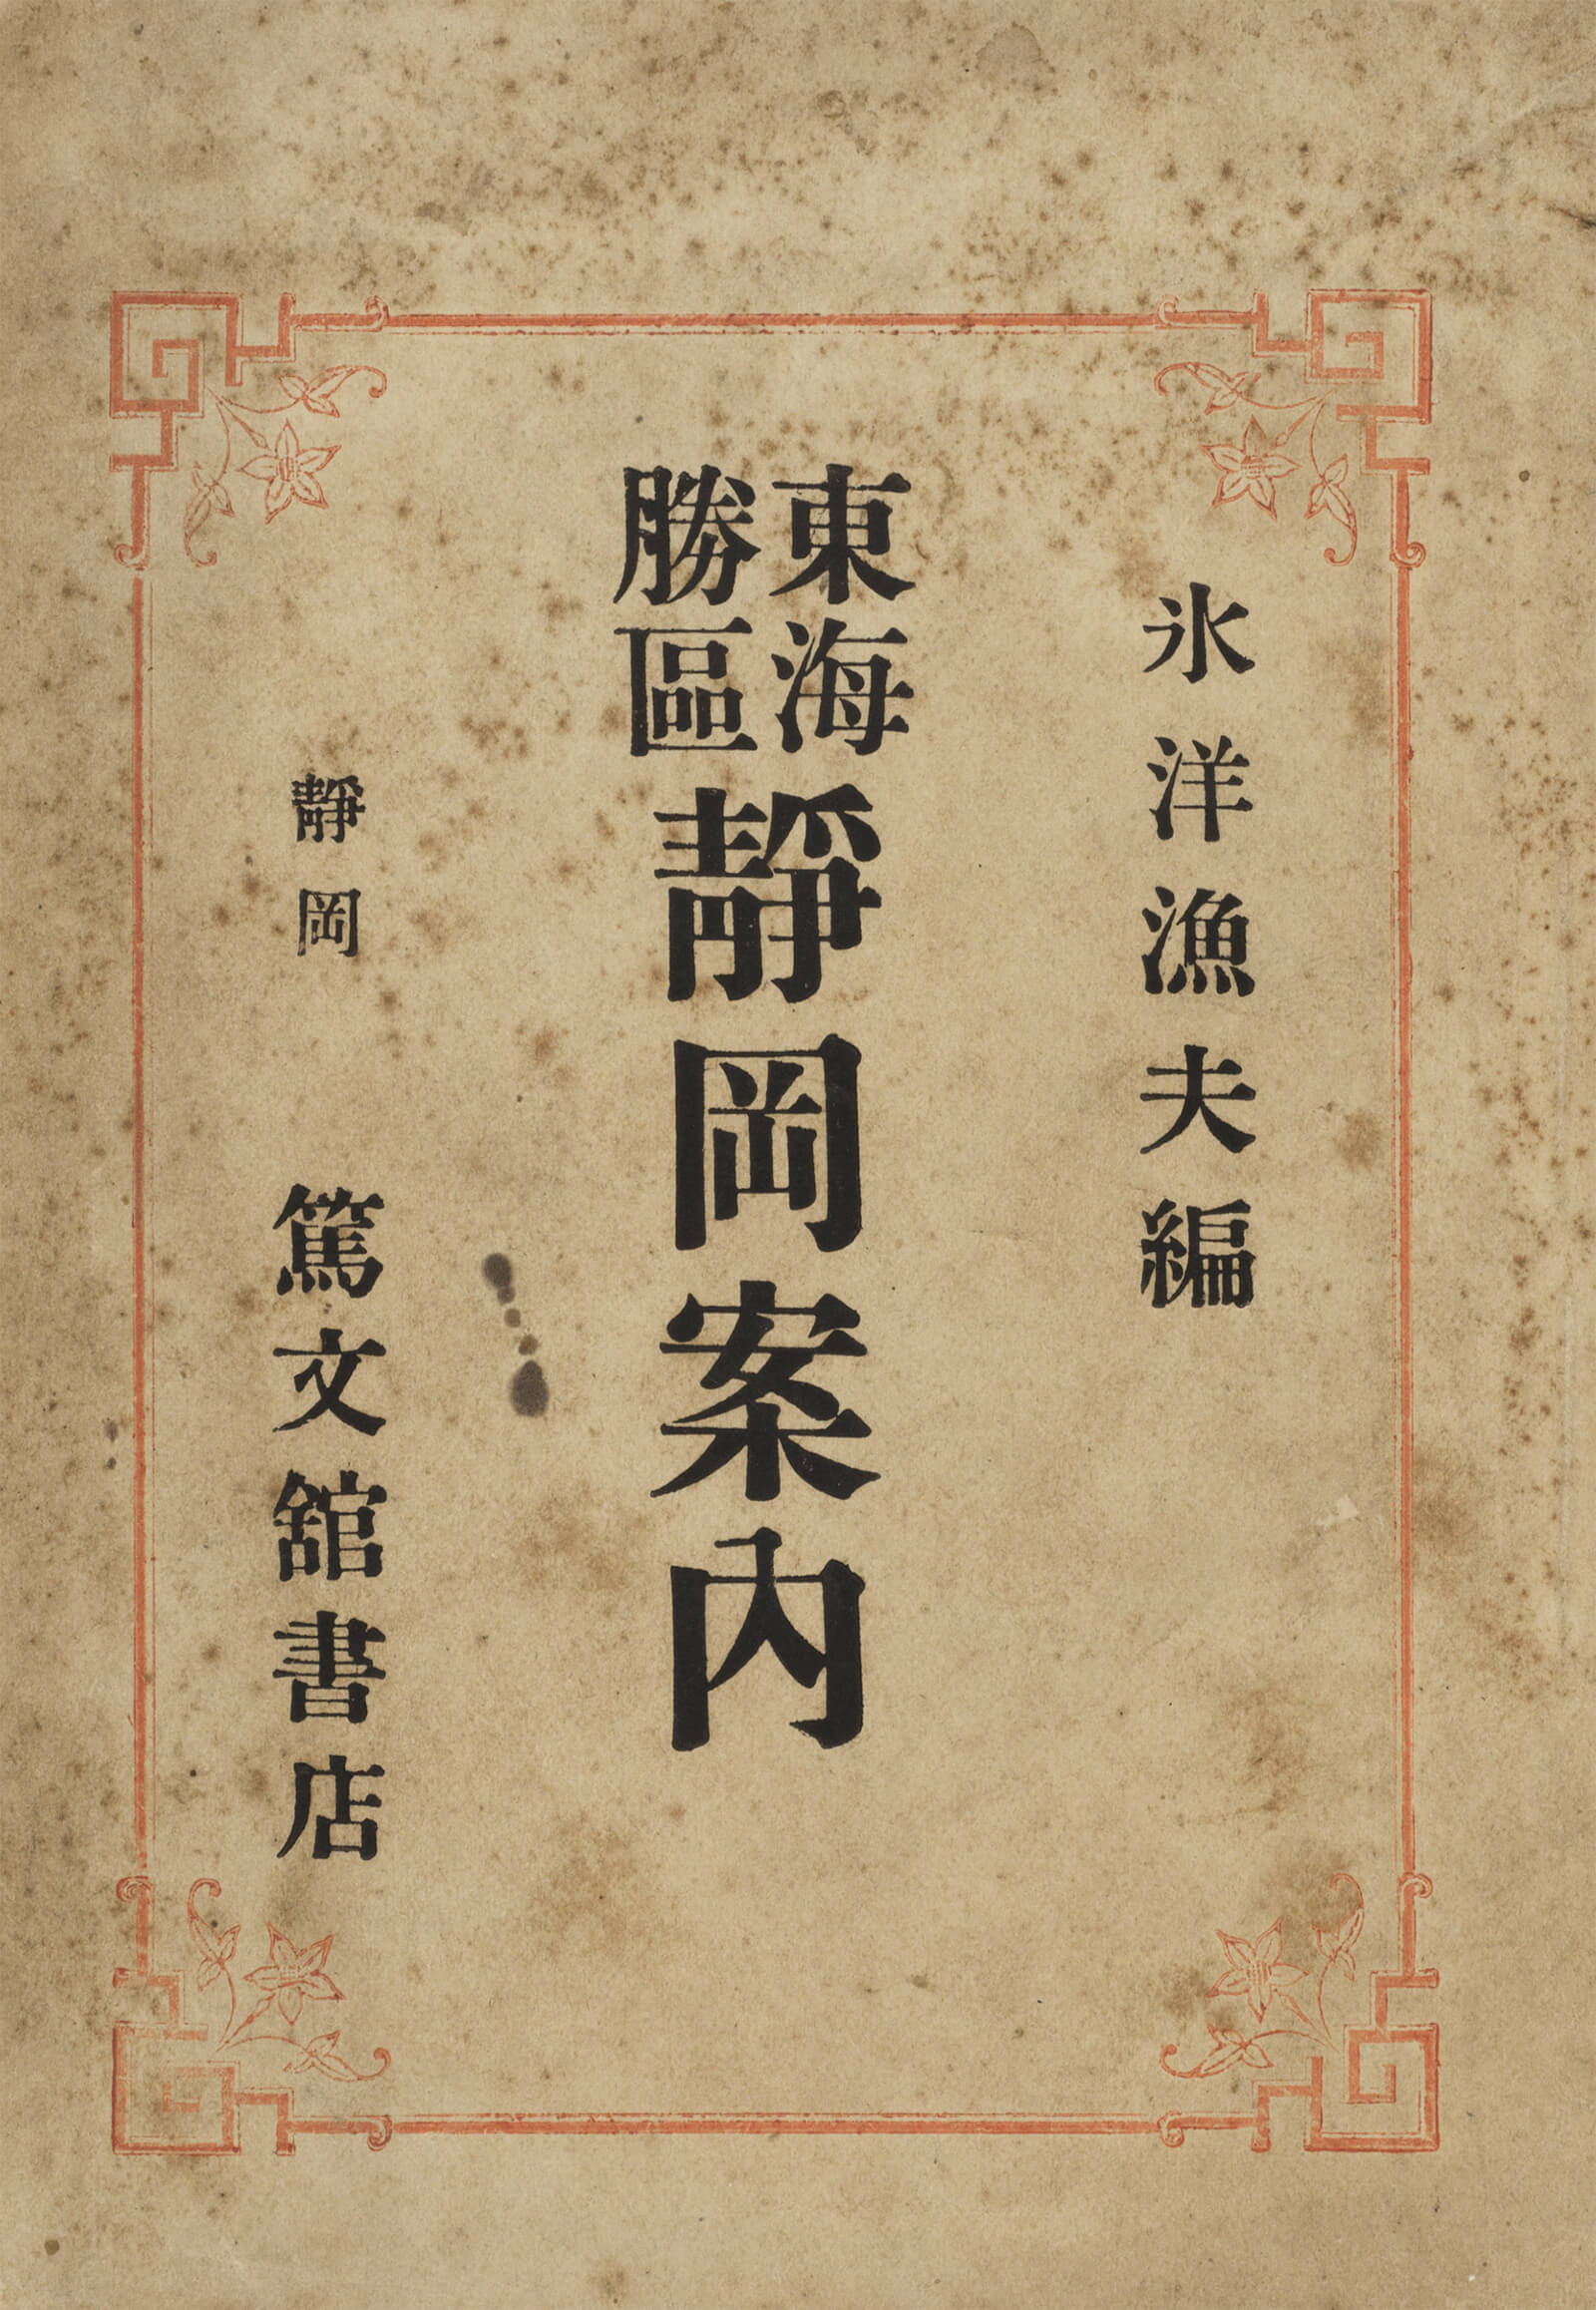 氷洋漁夫編
東海
勝區
靜岡案內
靜岡
篤文舘書店